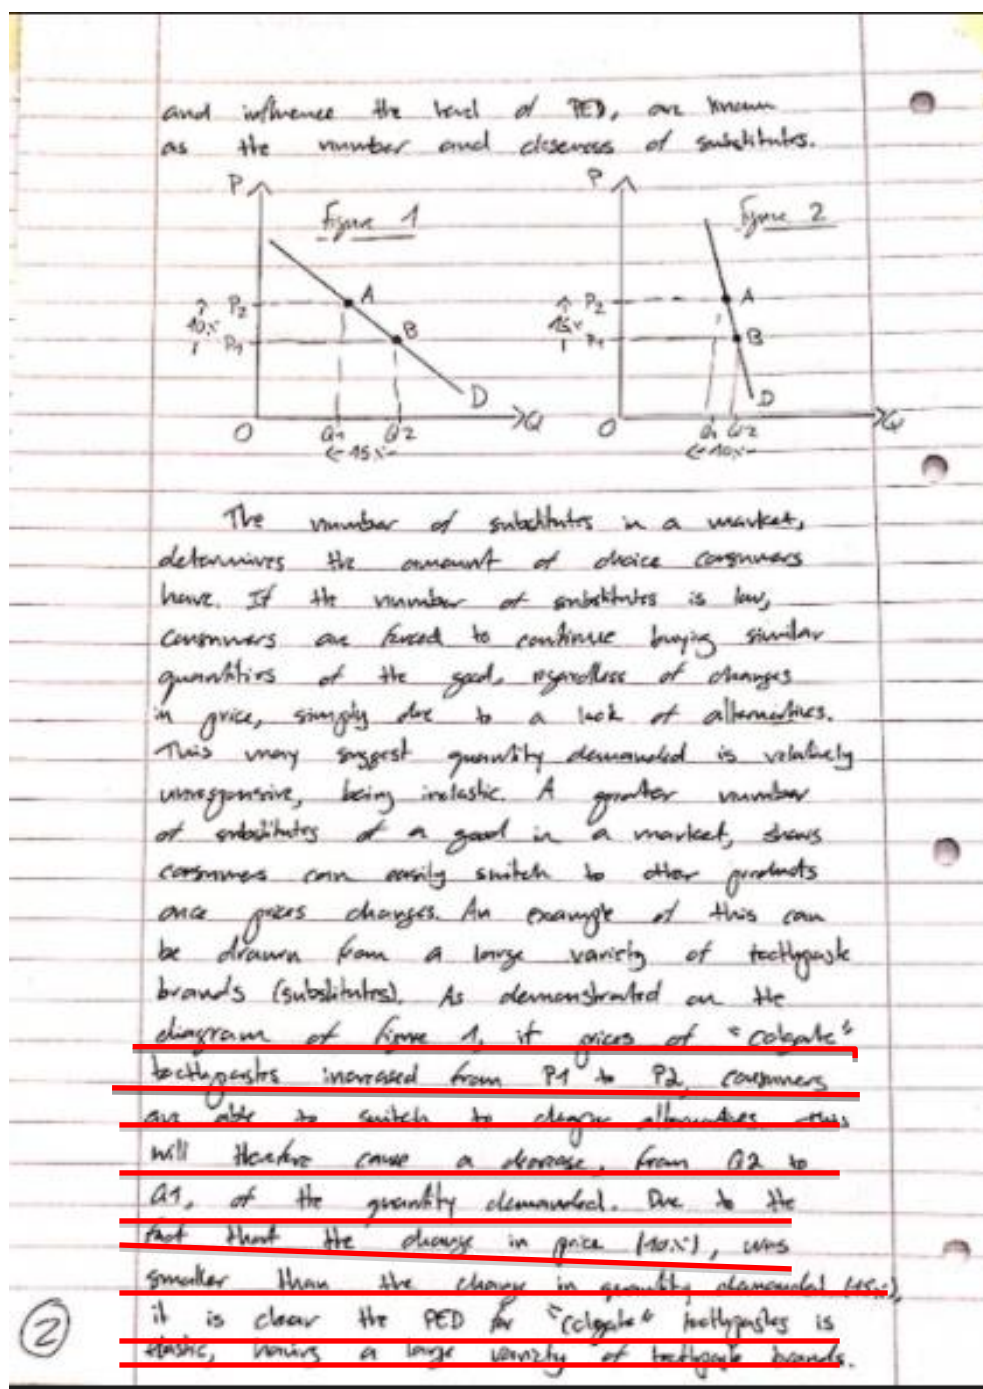 and influence the level of PED, are known
as the number and closeness of substitutes.
P Figure 1
P Figure 2
P2 A
10% P1 B
D
O Q1 Q2 Q
← 15%
P2 A
15% P1 B
D
O Q1 Q2 Q
← 10%
The number of substitutes in a market,
determines the amount of choice consumers
have. If the number of substitutes is low,
consumers are forced to continue buying similar
quantities of the good, regardless of changes
in price, simply due to a lack of alternatives.
This may suggest quantity demanded is relatively
unresponsive, being inelastic. A greater number
of substitutes of a good in a market, shows
consumers can easily switch to other products
once prices changes. An example of this can
be drawn from a large variety of toothpaste
brands (substitutes). As demonstrated on the
diagram of figure 1, if prices of "colgate"
toothpastes increased from P1 to P2, consumers
are able to switch to cheaper alternatives. This
will therefore cause a decrease, from Q2 to
Q1, of the quantity demanded. Due to the
fact that the change in price (10%), was
smaller than the change in quantity demanded (15%),
it is clear the PED for "colgate" toothpastes is
elastic, having a large variety of toothpaste brands.
2